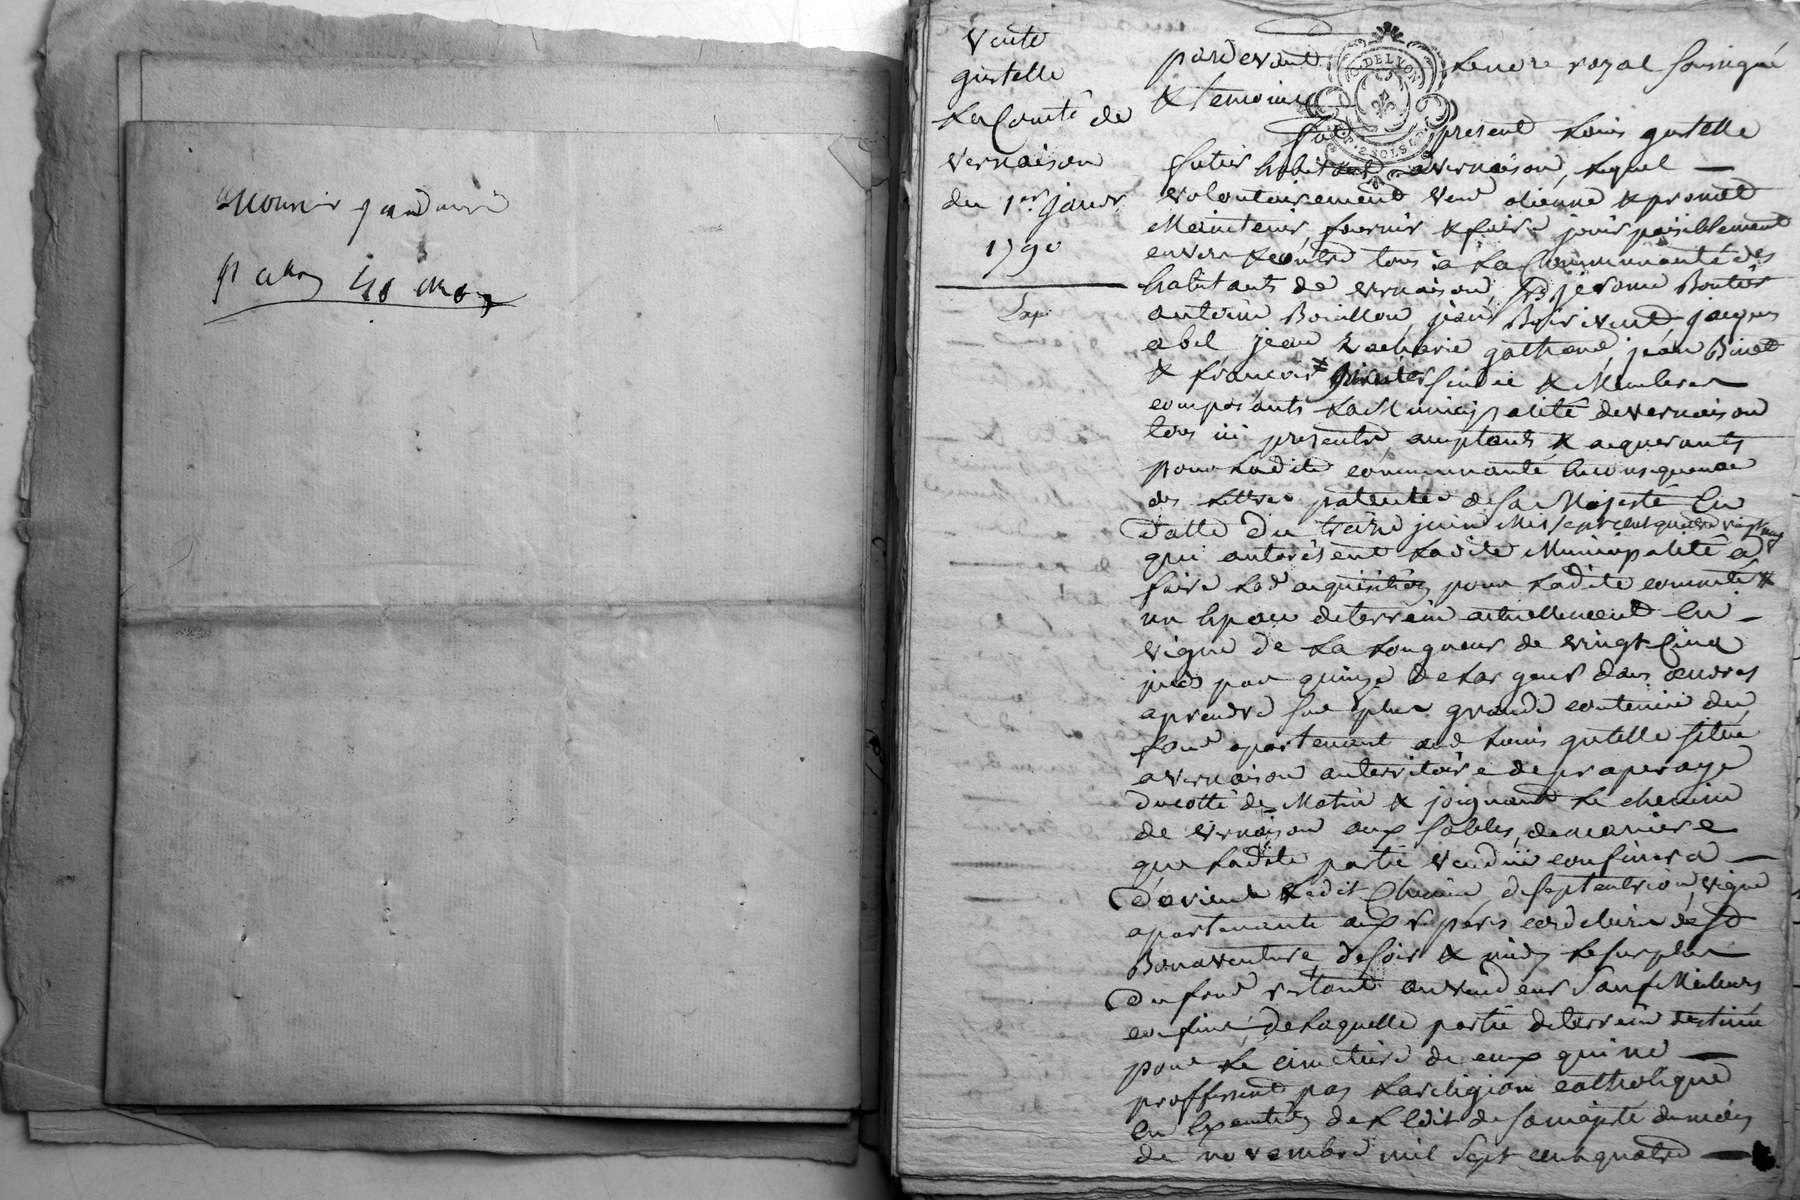 vente
gustelle
La Com̃té de
vernaison
du 1er janvr
1790
Exp.
pardevant Le no.re royal soussigné
& temoins
G. DE LYON
2 SOLS
fut present Louis gustelle
futier habitant a vernaison, lequel
volontairement vend aliene & promet
Maintenir, fournir & faire jouir paisiblement
envers & contre tous à La Communauté des
habitants de vernaison, Srs jerome Boutier
antoine Bouillon, jean Boirivent, jacques
abel jean Zacharie gathand, jean Binet
& francois sindic & Membres
composants La Municipalité de vernaison
tous ici presents acceptants & acquerants
pour Ladite communauté En consequence
des Lettres patentes de sa Majesté En
datte du treize juin Mil sept cent quatre vingt neuf
qui autorisent Ladite Municipalité a
faire Lad acquisition pour Ladite comm̃té
un Espace de terrein actuellement En
vigne de La Longueur de vingt Cinq
pieds par quinze de Largeur dans œuvres
a prendre sur plus grande contenue du
fond apartenant aud Louis gutelle situé
a vernaison au territoire de praperage
du cotté de Matin & joignant Le chemin
de vernaison aux sables, de maniere
que Ladite partie vendue confinera
d'orient Ledit Chemin, de septentrion vigne
apartenante aux r. peres cordeliers de St
Bonaventure, de soir & midy Le surplus
du fond restant au vendeur Sauf Meilleurs
confins, de Laquelle partie de terrein destinée
pour Le cimetiere de ceux qui ne
proffessent pas La religion catholique
En Execution de L'edit de sa majesté du mois
de novembre mil sept cent quatre